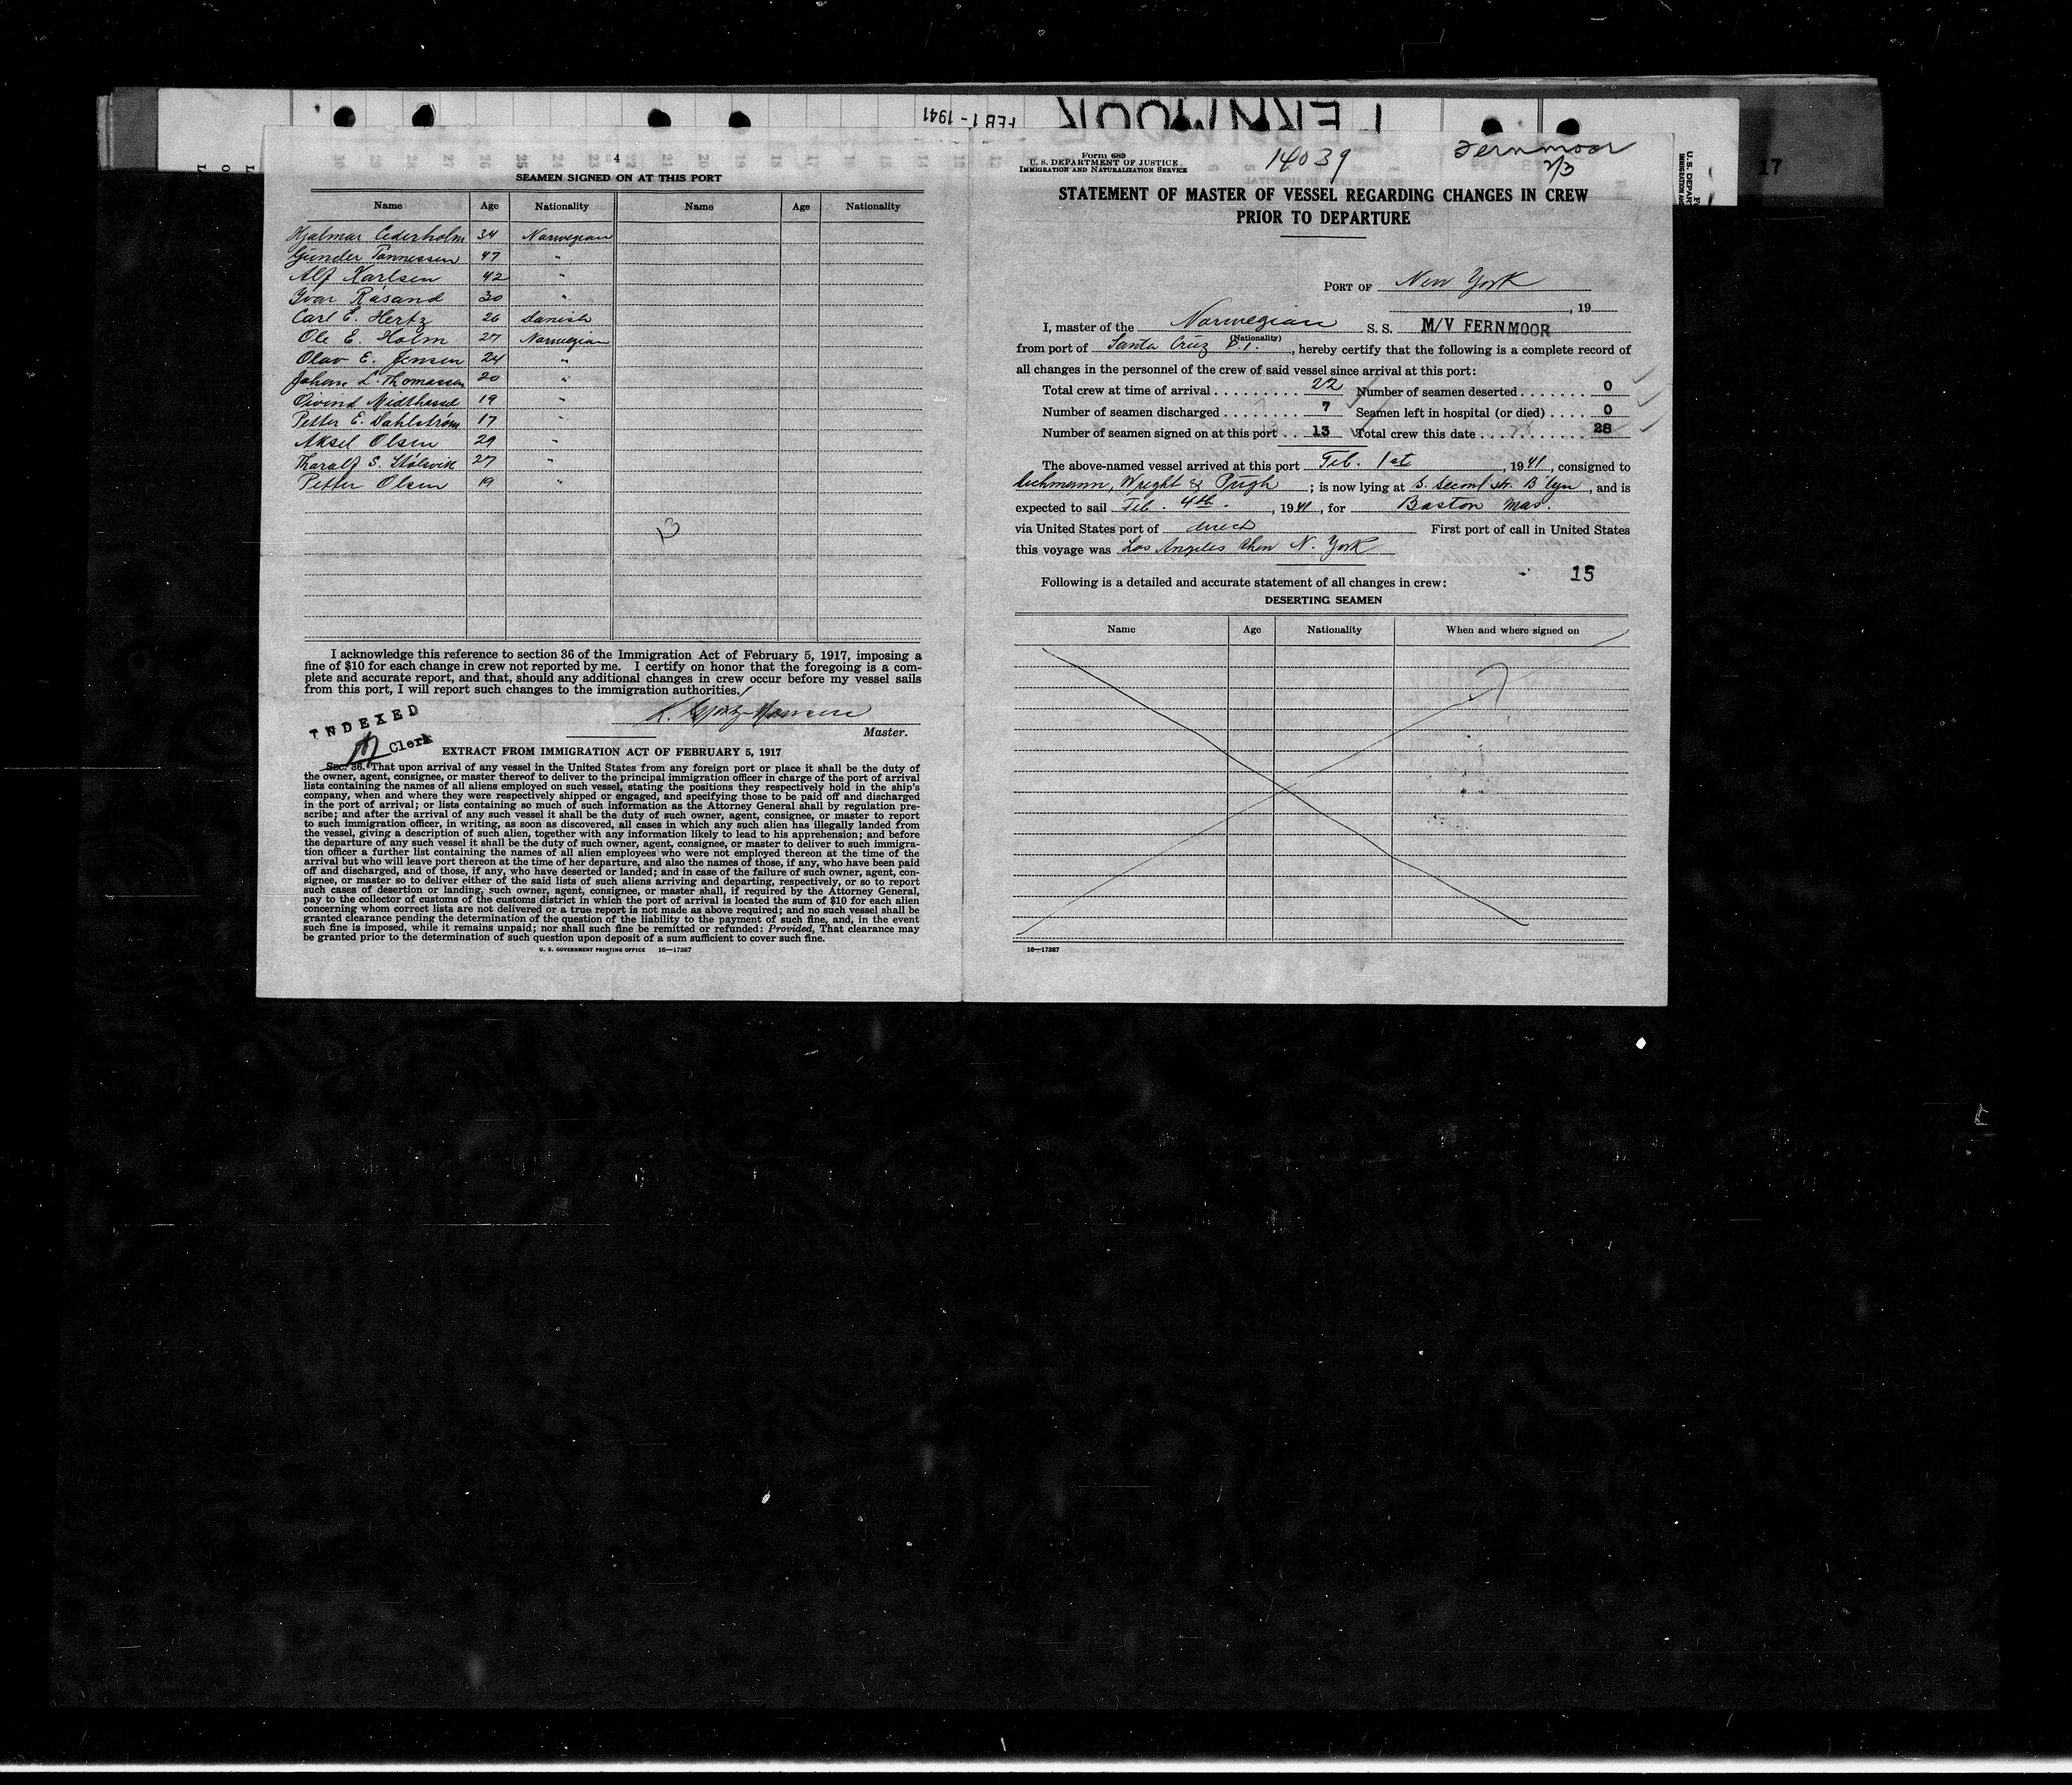 FEB 1 - 1941
FERNMOOR
17
4
SEAMEN SIGNED ON AT THIS PORT
Name Age Nationality Name Age Nationality
Hjalmar Cederholm 34 Norwegian
Gunder Tonnessen 47 "
Alf Karlsen 42 "
Ivar Rasand 30 "
Carl E. Hertz 26 Danish
Ole E. Holm 27 Norwegian
Olav E. Jensen 24 "
Johan L. Thomassen 20 "
Oivind Midthassel 19 "
Petter E. Dahlström 17 "
Aksel Olsen 29 "
Tharalf S. 27 "
Petter Olsen 19 "
13
I acknowledge this reference to section 36 of the Immigration Act of February 5, 1917, imposing a
fine of $10 for each change in crew not reported by me. I certify on honor that the foregoing is a com-
plete and accurate report, and that, should any additional changes in crew occur before my vessel sails
from this port, I will report such changes to the immigration authorities.
Master.
INDEXED
Clerk
EXTRACT FROM IMMIGRATION ACT OF FEBRUARY 5, 1917
Sec. 36. That upon arrival of any vessel in the United States from any foreign port or place it shall be the duty of
the owner, agent, consignee, or master thereof to deliver to the principal immigration officer in charge of the port of arrival
lists containing the names of all aliens employed on such vessel, stating the positions they respectively hold in the ship's
company, when and where they were respectively shipped or engaged, and specifying those to be paid off and discharged
in the port of arrival; or lists containing so much of such information as the Attorney General shall by regulation pre-
scribe; and after the arrival of any such vessel it shall be the duty of such owner, agent, consignee, or master to report
to such immigration officer, in writing, as soon as discovered, all cases in which any such alien has illegally landed from
the vessel, giving a description of such alien, together with any information likely to lead to his apprehension; and before
the departure of any such vessel it shall be the duty of such owner, agent, consignee, or master to deliver to such immigra-
tion officer a further list containing the names of all alien employees who were not employed thereon at the time of the
arrival but who will leave port thereon at the time of her departure, and also the names of those, if any, who have been paid
off and discharged, and of those, if any, who have deserted or landed; and in case of the failure of such owner, agent, con-
signee, or master so to deliver either of the said lists of such aliens arriving and departing, respectively, or so to report
such cases of desertion or landing, such owner, agent, consignee, or master shall, if required by the Attorney General,
pay to the collector of customs of the customs district in which the port of arrival is located the sum of $10 for each alien
concerning whom correct lists are not delivered or a true report is not made as above required; and no such vessel shall be
granted clearance pending the determination of the question of the liability to the payment of such fine, and, in the event
such fine is imposed, while it remains unpaid; nor shall such fine be remitted or refunded: Provided, That clearance may
be granted prior to the determination of such question upon deposit of a sum sufficient to cover such fine.
U. S. GOVERNMENT PRINTING OFFICE 16—17387
Form 689
U. S. DEPARTMENT OF JUSTICE
IMMIGRATION AND NATURALIZATION SERVICE
14039
Fernmoor
2/3
STATEMENT OF MASTER OF VESSEL REGARDING CHANGES IN CREW
PRIOR TO DEPARTURE
PORT OF New York
, 19
I, master of the Norwegian S. S. M/V FERNMOOR
(Nationality)
from port of Santa Cruz P.I. , hereby certify that the following is a complete record of
all changes in the personnel of the crew of said vessel since arrival at this port:
Total crew at time of arrival 22 Number of seamen deserted 0
Number of seamen discharged 7 Seamen left in hospital (or died) 0
Number of seamen signed on at this port 13 Total crew this date 28
The above-named vessel arrived at this port Feb. 1st , 1941, consigned to
Wright & Pugh ; is now lying at S. Second St. B'lyn , and is
expected to sail Feb. 4th. , 1941, for Boston Mas.
via United States port of direct First port of call in United States
this voyage was Los Angeles then N. York
15
Following is a detailed and accurate statement of all changes in crew:
DESERTING SEAMEN
Name Age Nationality When and where signed on
16—17387